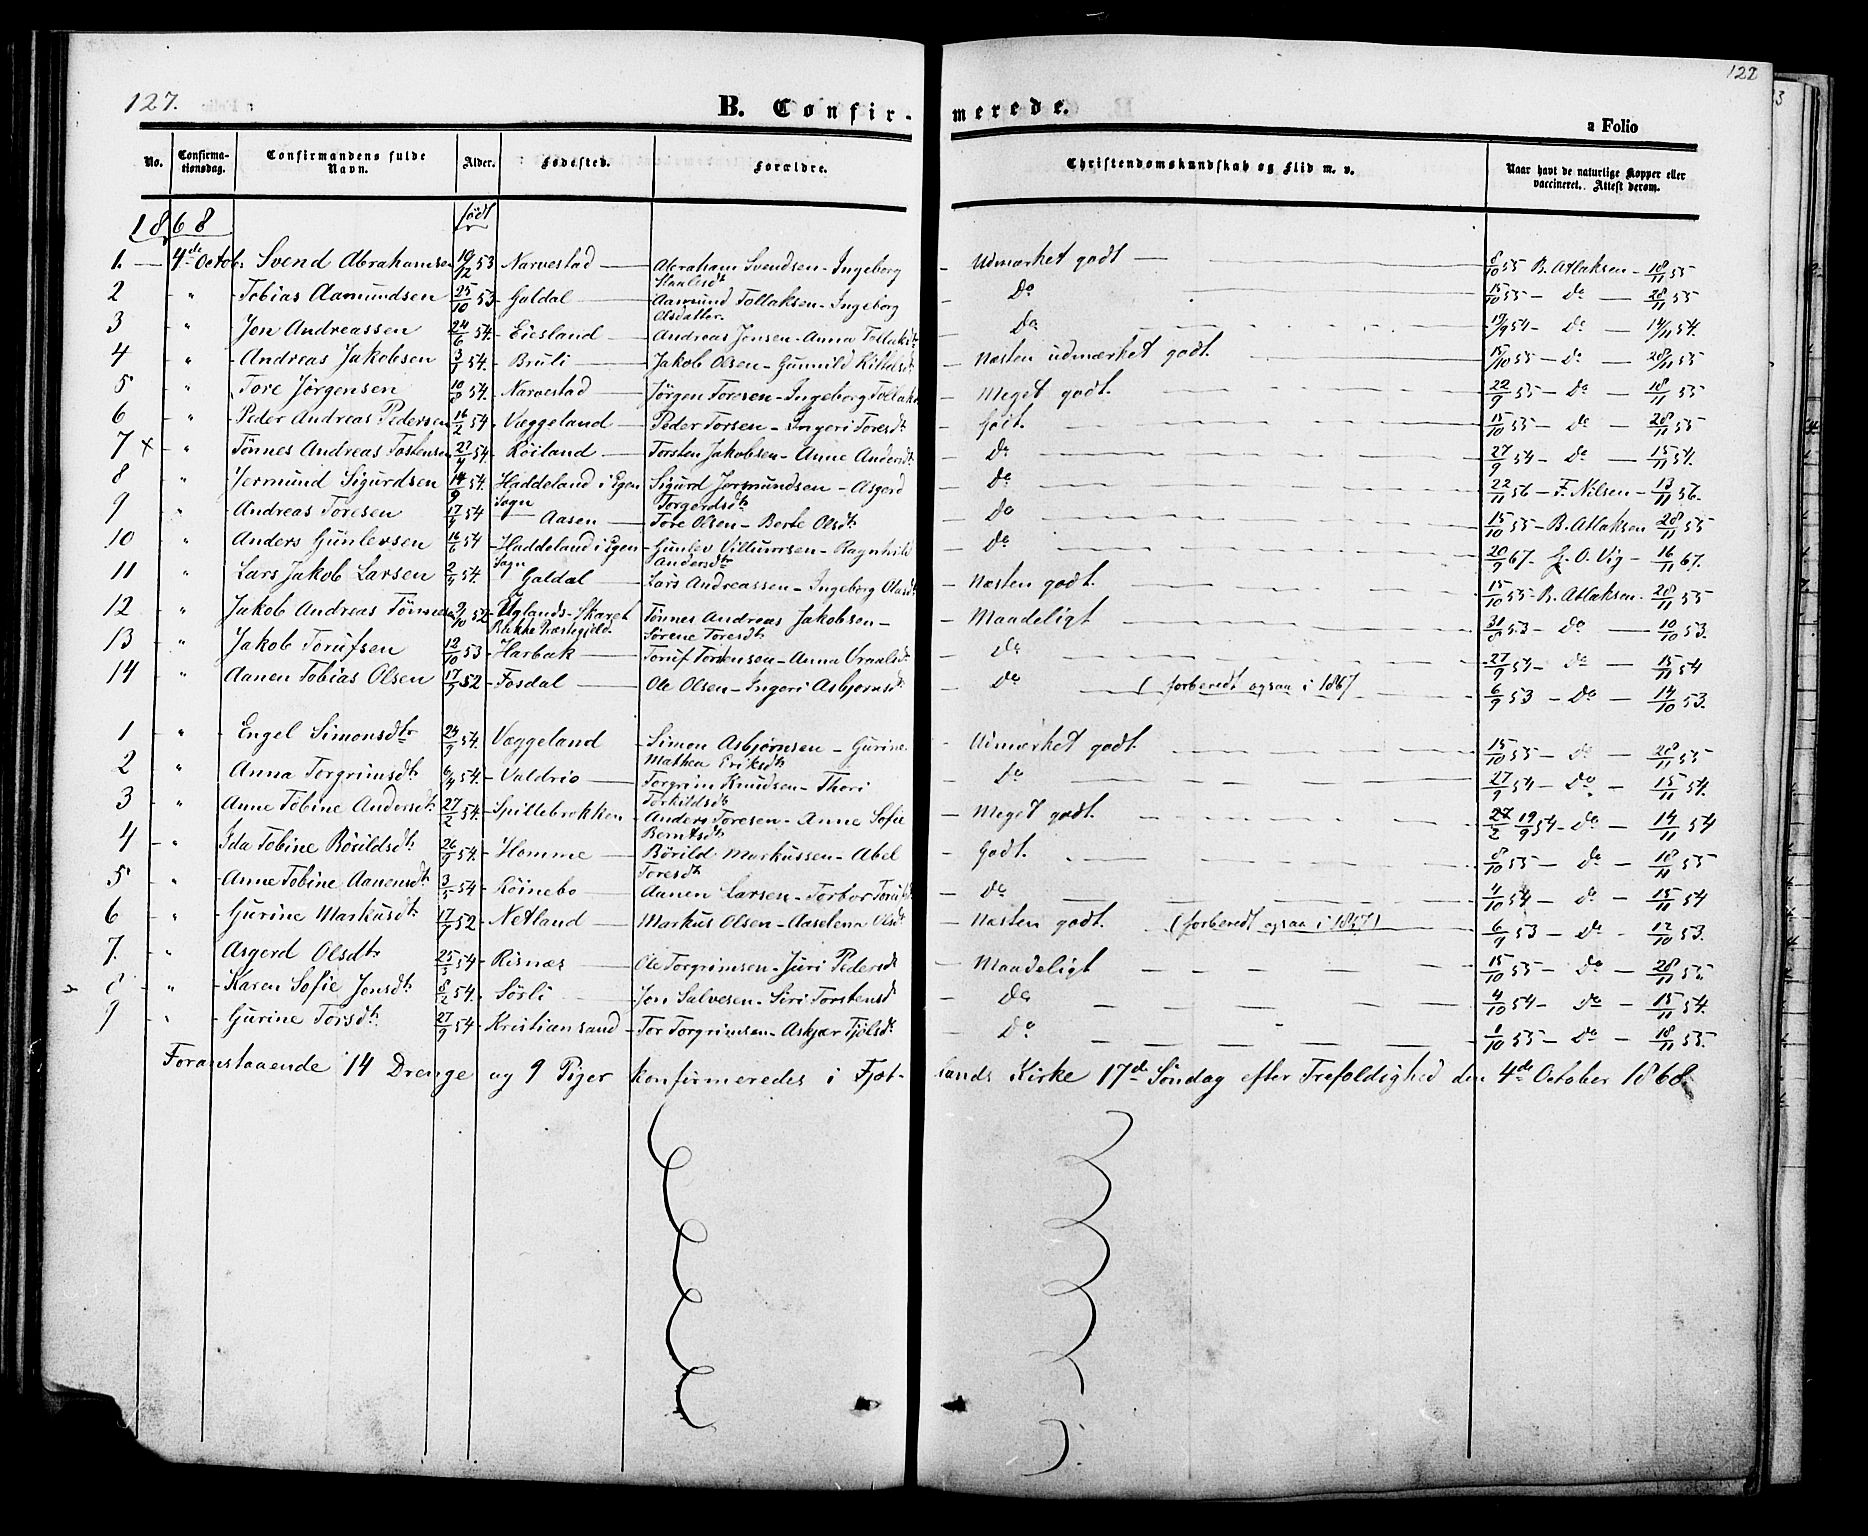 127.
122
B. Confir-merede.
a Folio
No. Confirmationsdag. Confirmandens fulde Navn. Alder. Fødested. Forældre. Christendomskundskab og Flid m. v. Naar havt de naturlige Kopper eller vaccineret. Attest derom.
1868 født
1. 4de Octob. Svend Abrahamsen 19/12 53 Narvestad Abraham Svendsen - Ingeborg Staalsdt Udmærket godt 8/10 55 B. Atlaksen - 18/11 55
2 " Tobias Aamundsen 25/10 53 Galdal Aamund Tollaksen - Ingeborg Olsdatter. Do 15/10 55 - Do - 28/11 55
3 " Jon Andreassen 24/6 54. Eiesland Andreas Jensen - Anna Tollaksdt Do 19/9 54 - Do - 14/11 54.
4 " Andreas Jakobsen 54. Bruli Jakob Olsen - Gunnild Kittelsdt Næsten udmærket godt. 15/10 55 - Do - 28/11 55
5 " Tore Jørgensen 10/8 54. Narvestad Jörgen Toresen - Ingeborg Tollaks Meget godt. 22/9 55 - Do - 18/11 55
6 " Peder Andreas Pedersen 16/2 54. Væggeland Peder Torsen - Ingeri Toresdt godt. 15/10 55 - Do - 28/11 55
7 x " Tönnes Andreas Tostensen 22/4 54. Röiland Torsten Jakobsen - Anne Andersdt Do 27/9 54 - Do - 15/11 54.
8 " Jermund Sigurdsen 14/9 54. Haddeland i Egen Sogn Sigurd Jermundsen - Asgerd Torgerdsdt Do 22/11 56 - F. Nilsen - 13/11 56.
9 " Andreas Toresen 17/9 54 Aasen Tore Olsen - Berte Olsdt Do 15/10 55 - B. Atlaksen 28/11 55
10 " Anders Gunlevsen 16/6 54 Haddeland i Egen Sogn Gunlev Villumsen - Ragnhild Andersdtr Do 20/9 67. J. O. Vig - 16/11 67.
11 " Lars Jakob Larsen 2/9 54. Galdal Lars Andreassen - Ingeborg Olsdt Næsten godt. 15/10 55 - B. Atlaksen. 28/11 55
12 " Jakob Andreas Tönnesen 9/10 52 Uglands-Skaret Tönnes Andreas Jakobsen - Sörene Toresdt. Maadeligt 31/8 53 - Do - 10/10 53.
13 " Jakob Torufsen 12/10 53 Harbak Toruf Torstensen - Anna Do 27/9 54 - Do - 15/11 54
14 " Aanen Tobias Olsen 17/9 52 Fosdal Ole Olsen - Ingeri Asbjørnsdt Do (forberedt ogsaa i 1867 6/9 53 - Do - 14/10 53.
1 " Engel Simonsdtr 24/9 54. Væggeland Simon Asbjørnsen - Gurine Mathea Eriksdt Udmærket godt. 15/10 55 - Do - 28/11 55
2 " Anna Torgrimsdt. 6/4 54. Valdrio Torgrim Knudsen - Thori Torkildsdt Do 27/9 54 - Do - 15/11 54.
3 " Anne Tobine Andersdt. 27/2 54. Spillebrokken Anders Toresen - Anne Sofie Berntsdt. Meget godt. 27/2 19/9 54 - Do - 14/11 54
4 " Ida Tobine Börildsdt. 26/9 54. Homme Börild Markussen - Abel Toresdt Godt. 8/10 55 - Do - 18/11 55
5 " Anne Tobine Aanensdt. 3/5 54. Röinebo Aanen Larsen - Torbor Do 4/10 54 - Do - 15/11 54
6 " Gurine Markusdt. 17/9 52 Netland Markus Olsen - Aaselena Olsdt Næsten godt. (forberedt ogsaa i 1867) 6/9 53 - Do - 12/10 53.
7. " Asgerd Olsdt. 25/5 54 Risnæs Ole Torgrimsen - Juri Pedersdt Maadeligt 15/10 55 - Do - 28/11 55
8 " Karen Sofie Jonsdt. 8/2 54. Sörli Jon Salvesen - Siri Torstensd Do 4/10 54 - Do - 15/11 54.
9 " Gurine Torsdt. 27/9 54 Kristiansand Tor Torgrimsen - Askjær Tjölsdt Do 1/10 55 - Do - 18/11 55.
Foranstaaende 14 Drenge og 9 Piger konfirmeredes i Fjot-lands Kirke 17de Söndag efter Trefoldighed den 4de October 1868.